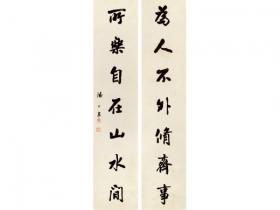 為人不外脩齊事
所樂自在山水間